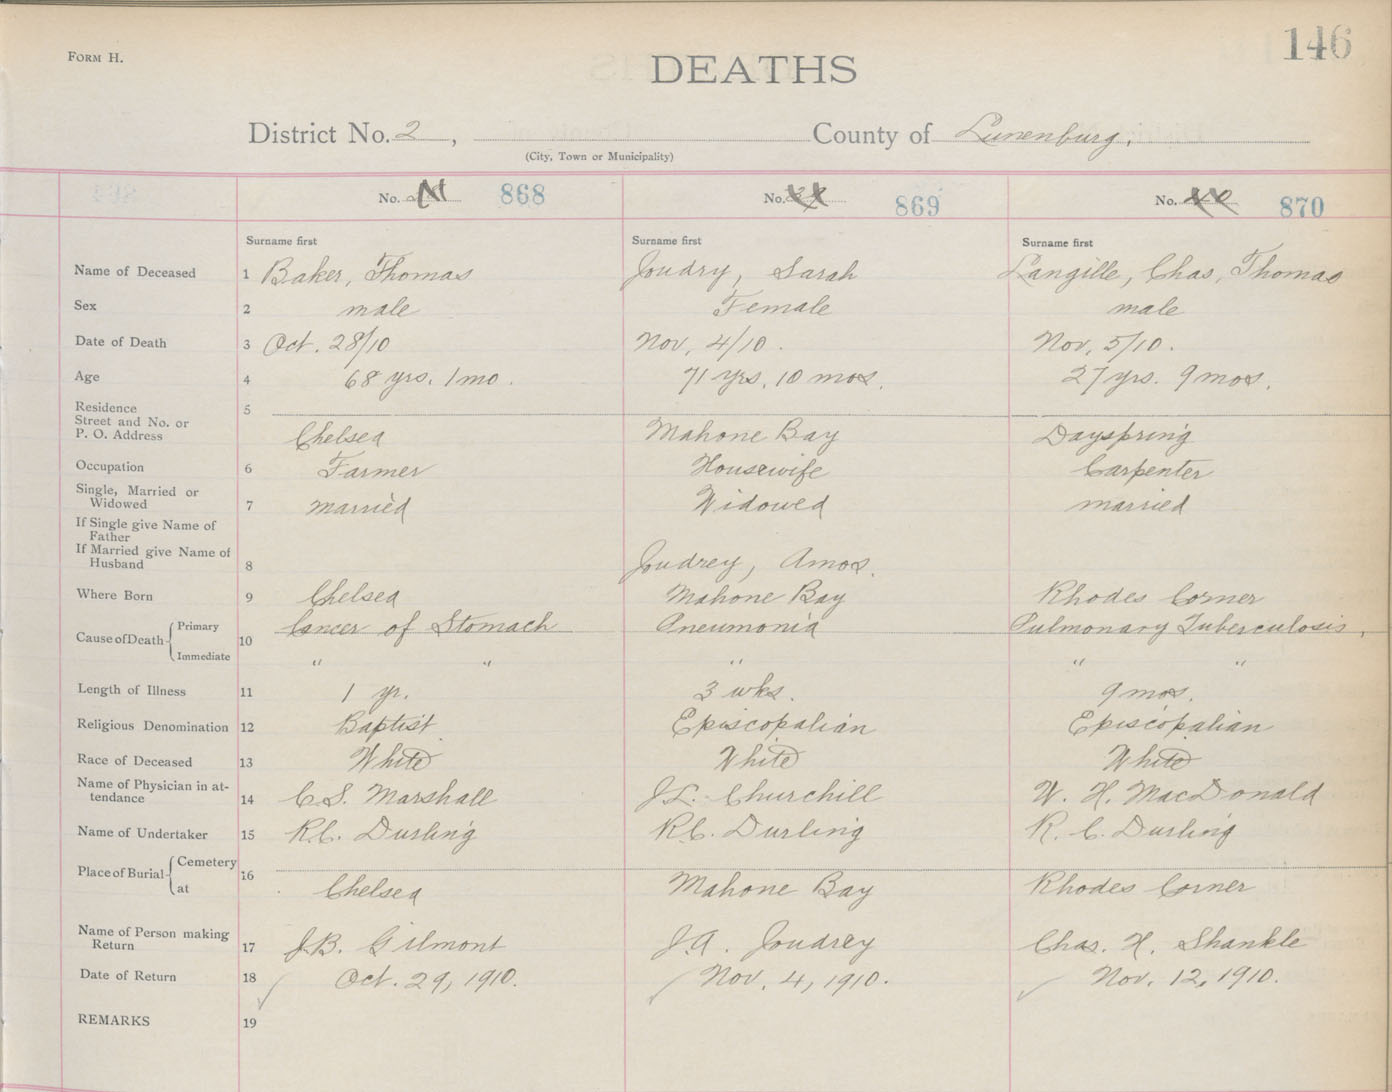 146
FORM H.
DEATHS
District No. 2, County of Lunenburg,
(City, Town or Municipality)
No. 868 No. 869 No. 870
Surname first Surname first Surname first
Name of Deceased 1 Baker, Thomas Joudry, Sarah Langille, Chas, Thomas
Sex 2 male Female male
Date of Death 3 Oct. 28/10 Nov, 4/10. Nov, 5/10.
Age 4 68 yrs. 1 mo. 71 yrs. 10 mos. 27 yrs. 9 mos.
Residence 5
Street and No. or
P. O. Address Chelsea Mahone Bay Dayspring
Occupation 6 Farmer Housewife Carpenter
Single, Married or
Widowed 7 married Widowed married
If Single give Name of
Father
If Married give Name of
Husband 8 Joudrey, Amos.
Where Born 9 Chelsea Mahone Bay Rhodes Corner
Cause of Death Primary 10 Cancer of Stomach Pneumonia Pulmonary Tuberculosis,
Immediate " " " " "
Length of Illness 11 1 yr. 3 wks. 9 mos.
Religious Denomination 12 Baptist Episcopalian Episcopalian
Race of Deceased 13 White White White
Name of Physician in at-
tendance 14 C. S. Marshall J. L. Churchill W. H. MacDonald
Name of Undertaker 15 R.C. Durling R.C. Durling R. C. Durling
Place of Burial Cemetery 16
at Chelsea Mahone Bay Rhodes Corner
Name of Person making
Return 17 J.B. Gilmont J.A. Joudrey Chas. H. Shankle
Date of Return 18 Oct. 29, 1910. Nov. 4, 1910. Nov. 12, 1910.
REMARKS 19